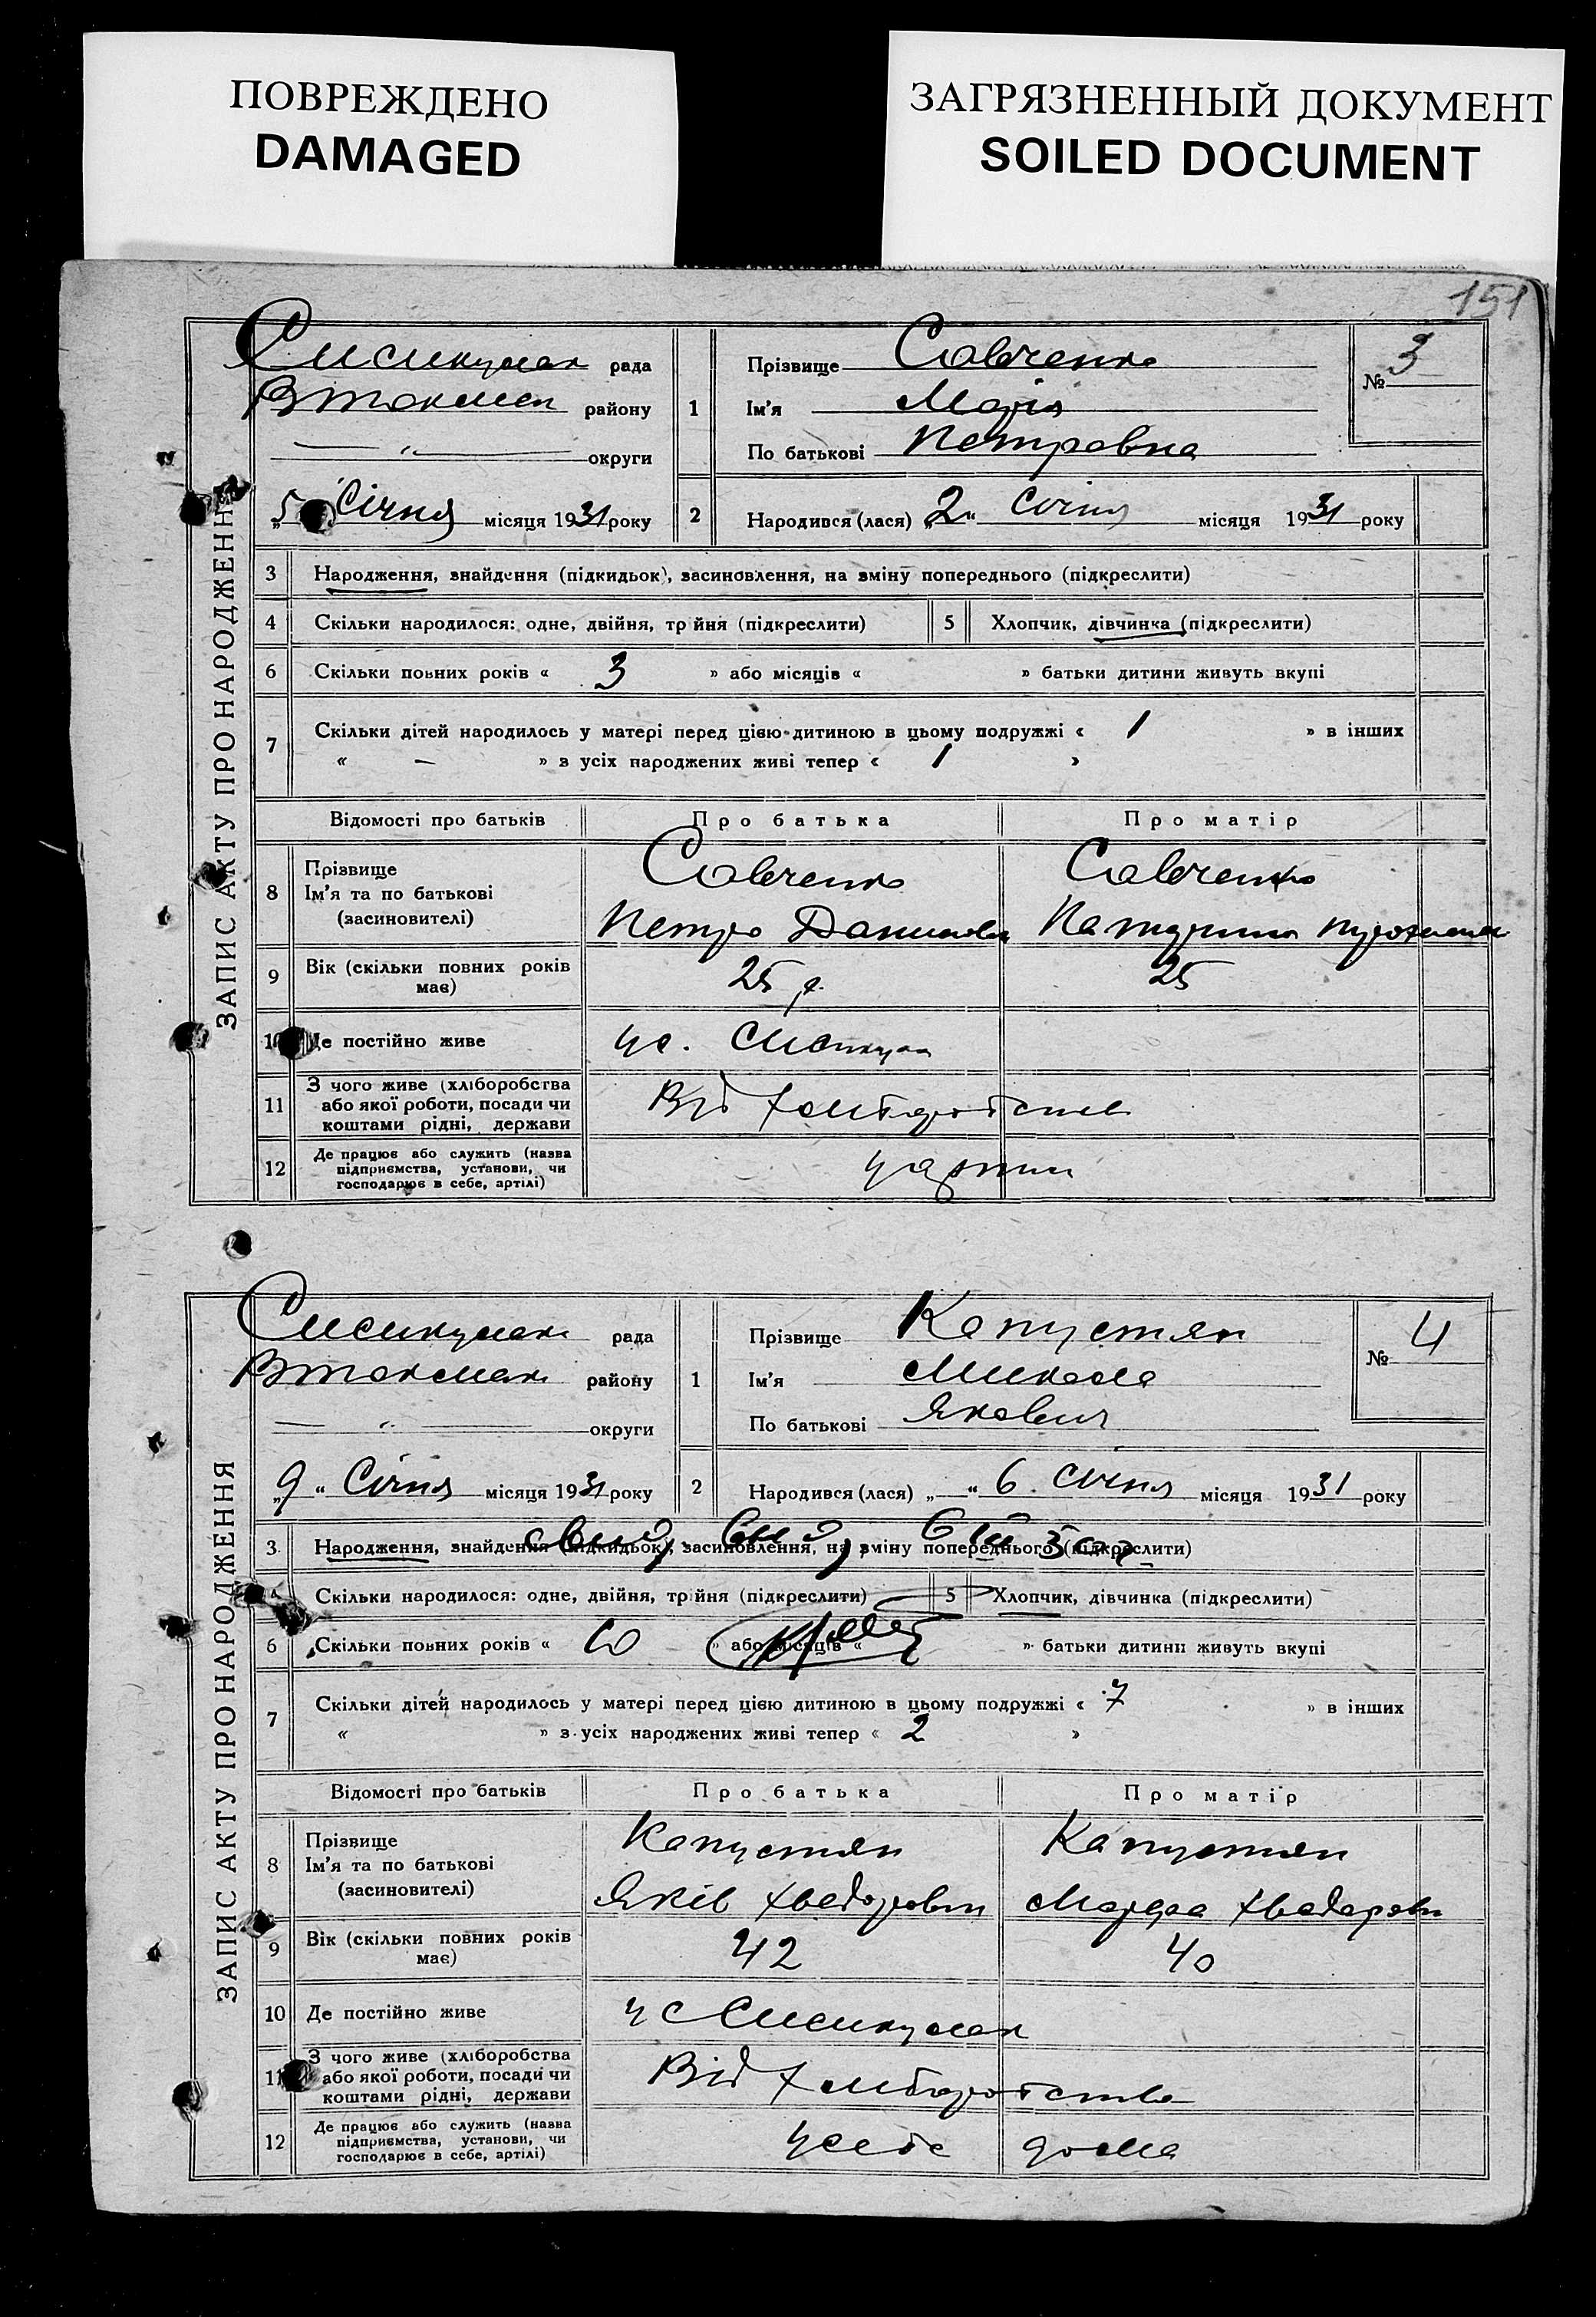 ПОВРЕЖДЕНО
DAMAGED
ЗАГРЯЗНЕННЫЙ ДОКУМЕНТ
SOILED DOCUMENT
151
ЗАПИС АКТУ ПРО НАРОДЖЕННЯ
рада
району
— „ — округи
„5 Січня місяця 1931 року
1
Прізвище Савченко
Ім'я Марія
По батькові Петровна
№ 3
2 Народився (лася) „2“ Січня місяця 1931 року
3 Народження, знайдення (підкидьок), засиновлення, на зміну попереднього (підкреслити)
4 Скільки народилося: одне, двійня, трійня (підкреслити) 5 Хлопчик, дівчинка (підкреслити)
6 Скільки повних років « 3 » або місяців « » батьки дитини живуть вкупі
7 Скільки дітей народилось у матері перед цією дитиною в цьому подружжі « 1 » в інших
« — » з усіх народжених живі тепер « 1 »
Відомості про батьків Про батька Про матір
8 Прізвище
Ім'я та по батькові
(засиновителі)
Савченко Савченко
Петро
9 Вік (скільки повних років
має)
25 р. 25
10 Де постійно живе
у с.
11 З чого живе (хліборобства
або якої роботи, посади чи
коштами рідні, держави
Від хліборобства
12 Де працює або служить (назва
підприємства, установи, чи
господарює в себе, артілі)
ЗАПИС АКТУ ПРО НАРОДЖЕННЯ
рада
району
— „ — округи
„9“ Січня місяця 1931 року
1
Прізвище Капустян
Ім'я Микола
По батькові Якович
№ 4
2 Народився (лася) „ “ 6. Січня місяця 1931 року
3 Народження, знайдення (підкидьок), засиновлення, на зміну попереднього (підкреслити)
Скільки народилося: одне, двійня, трійня (підкреслити) 5 Хлопчик, дівчинка (підкреслити)
6 Скільки повних років « » або місяців « » батьки дитини живуть вкупі
7 Скільки дітей народилось у матері перед цією дитиною в цьому подружжі « 7 » в інших
« » з усіх народжених живі тепер « 2 »
Відомості про батьків Про батька Про матір
8 Прізвище
Ім'я та по батькові
(засиновителі)
Капустян Капустян
Яків
9 Вік (скільки повних років
має)
42 40
10 Де постійно живе
у с
11 З чого живе (хліборобства
або якої роботи, посади чи
коштами рідні, держави
Від хліборобства
12 Де працює або служить (назва
підприємства, установи, чи
господарює в себе, артілі)
у себе дома